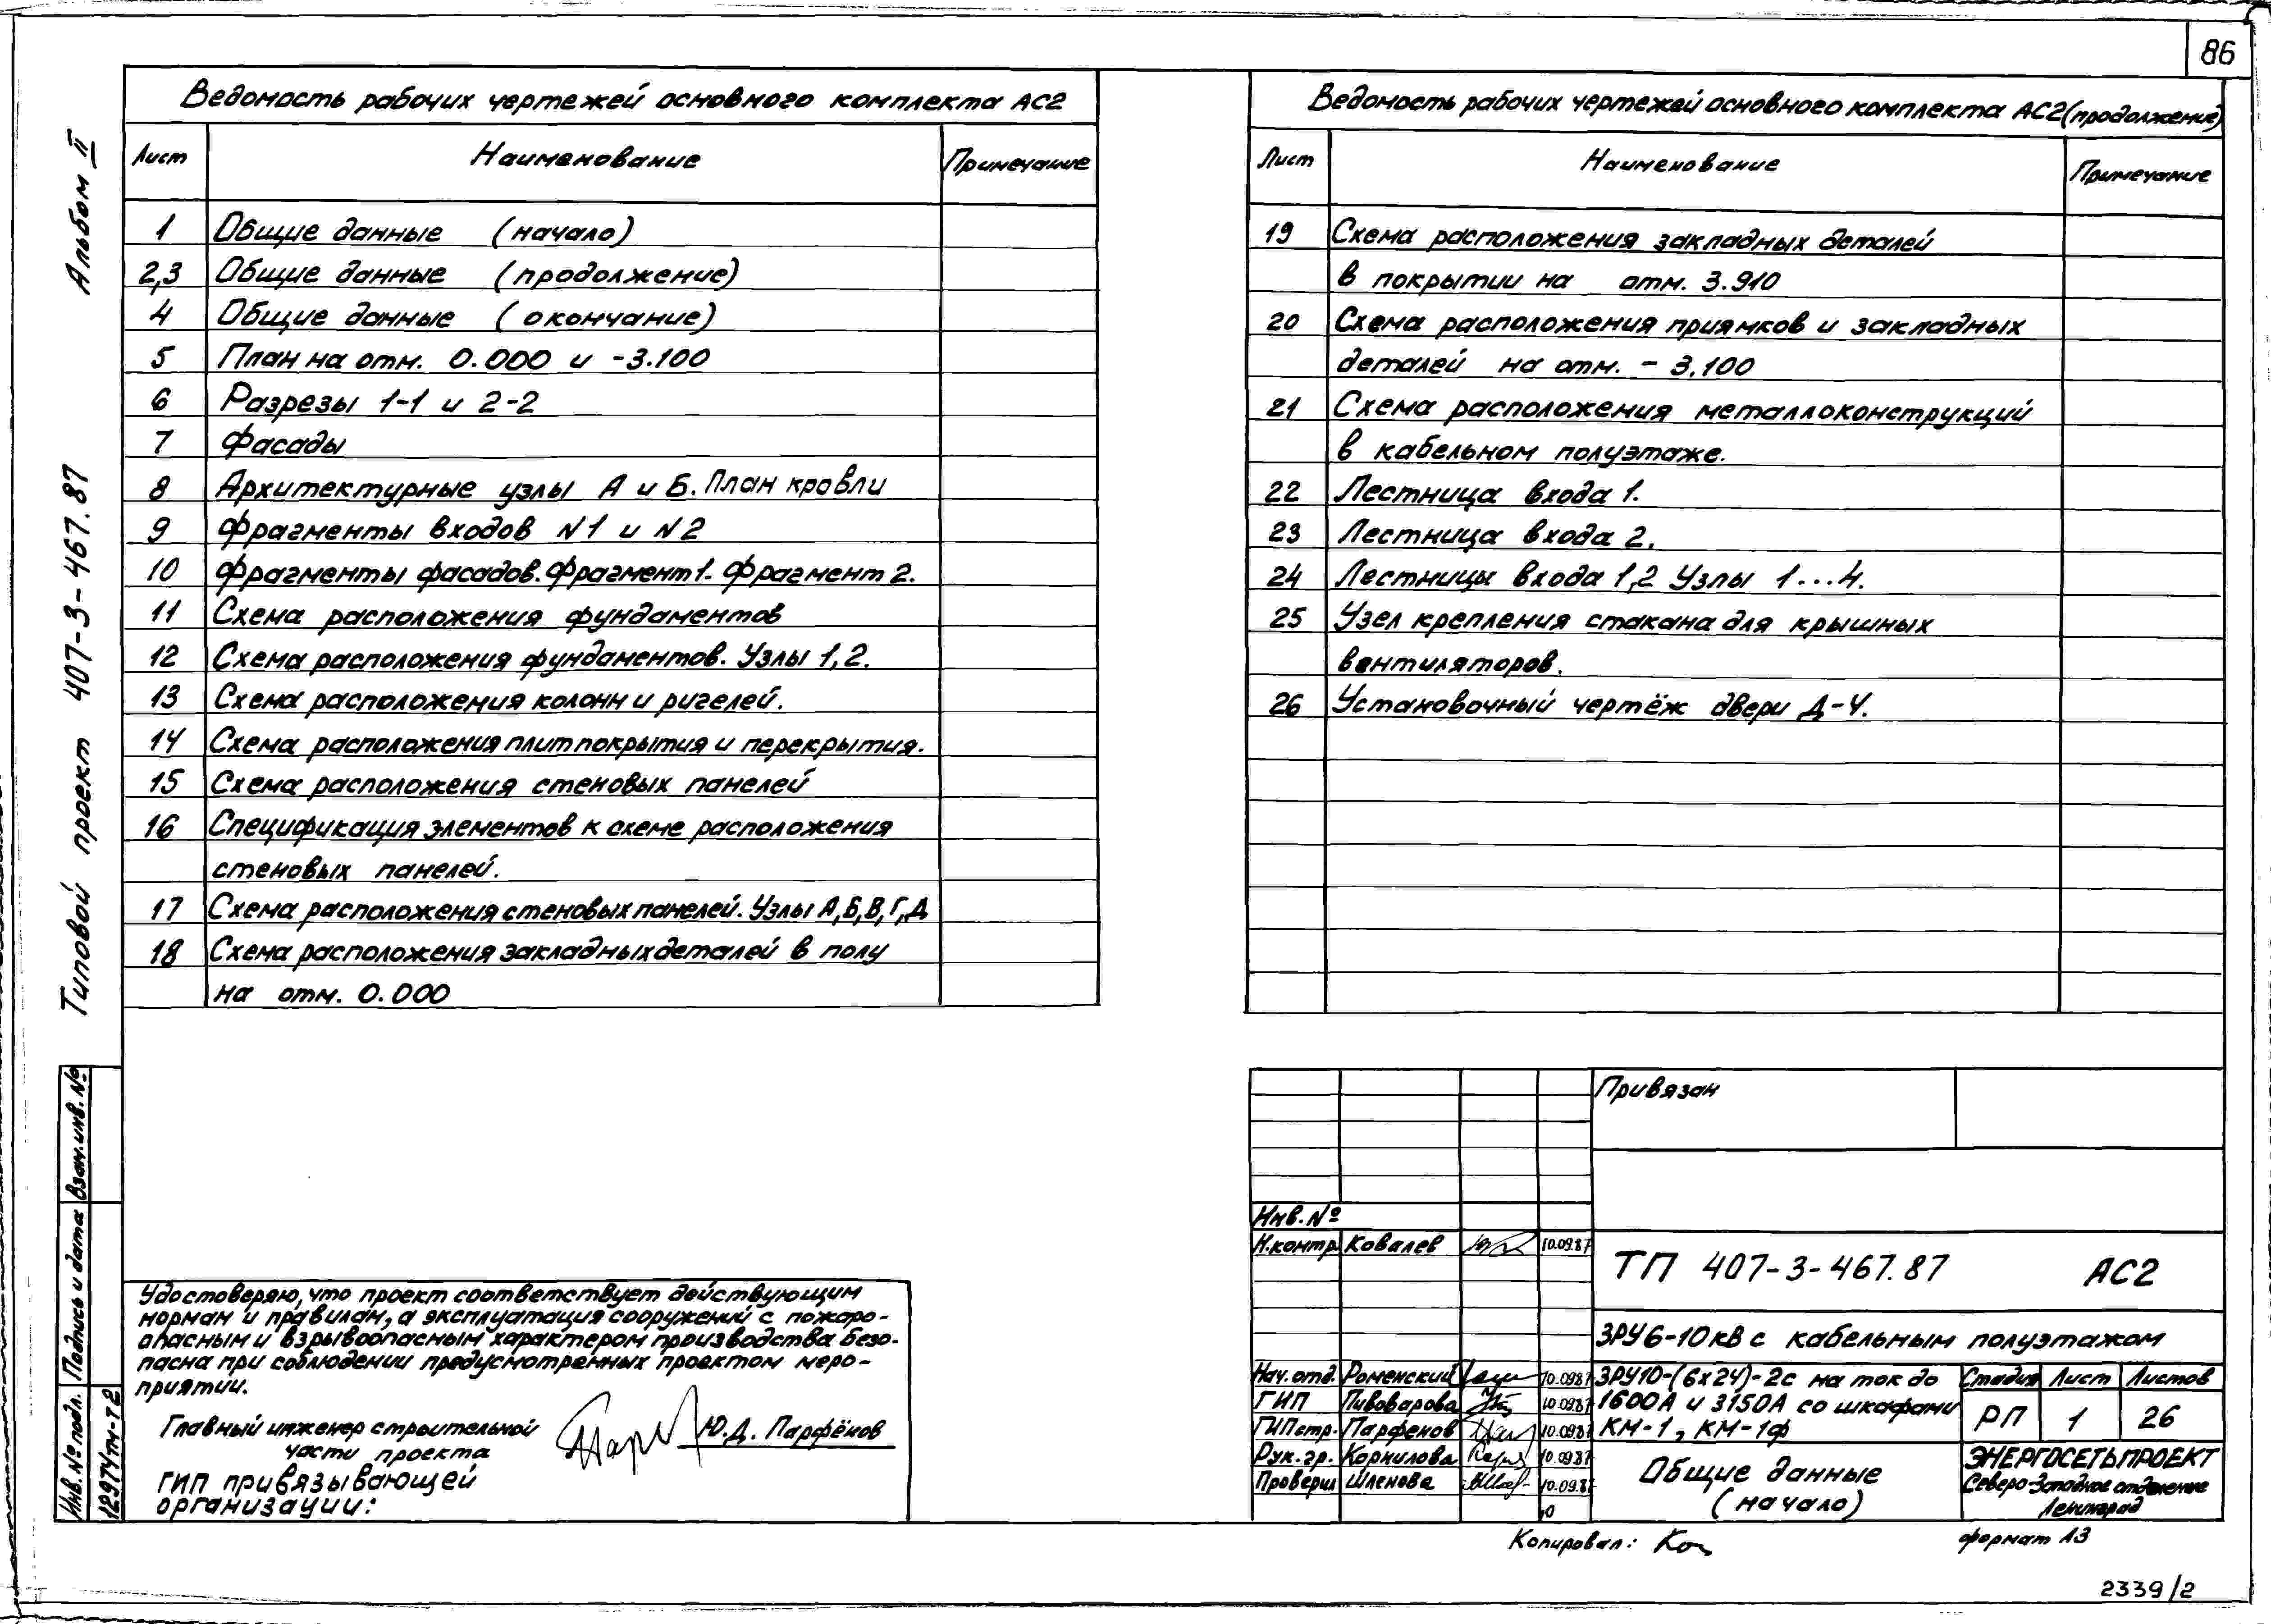 86
Альбом II
Типовой проект 407-3-467.87
Ведомость рабочих чертежей основного комплекта АС2
Лист Наименование Примечание
1 Общие данные (начало)
2,3 Общие данные (продолжение)
4 Общие данные (окончание)
5 План на отм. 0.000 и -3.100
6 Разрезы 1-1 и 2-2
7 Фасады
8 Архитектурные узлы А и Б. План кровли
9 Фрагменты входов N1 и N2
10 Фрагменты фасадов. Фрагмент 1. Фрагмент 2.
11 Схема расположения фундаментов
12 Схема расположения фундаментов. Узлы 1,2.
13 Схема расположения колонн и ригелей.
14 Схема расположения плит покрытия и перекрытия.
15 Схема расположения стеновых панелей
16 Спецификация элементов к схеме расположения
стеновых панелей.
17 Схема расположения стеновых панелей. Узлы А,Б,В,Г,Д
18 Схема расположения закладных деталей в полу
на отм. 0.000
Ведомость рабочих чертежей основного комплекта АС2 (продолжение)
Лист Наименование Примечание
19 Схема расположения закладных деталей
в покрытии на отм. 3.910
20 Схема расположения приямков и закладных
деталей на отм. - 3.100
21 Схема расположения металлоконструкций
в кабельном полуэтаже.
22 Лестница входа 1.
23 Лестница входа 2.
24 Лестницы входа 1,2 Узлы 1...4.
25 Узел крепления стакана для крышных
вентиляторов.
26 Установочный чертёж двери Д-4.
Взам. инв. №
Подпись и дата
Инв. № подл.
12974тм-т2
Удостоверяю, что проект соответствует действующим
нормам и правилам, а эксплуатация сооружений с пожаро-
опасным и взрывоопасным характером производства безо-
пасна при соблюдении предусмотренных проектом меро-
приятии.
Главный инженер строительной
части проекта Ю.Д. Парфёнов
ГИП привязывающей
организации:
Привязан
Инв. №
Н.контр. Ковалев 10.09.87
ТП 407-3-467.87 АС2
ЗРУ 6-10 кВ с кабельным полуэтажом
Нач. отд. Роменский 10.09.87
ГИП Пивоварова 10.09.87
ГИП стр. Парфенов 10.09.87
Рук. гр. Корнилова 10.09.87
Проверил Шленова 10.09.87
10
ЗРУ10-(6х24)-2с на ток до
1600А и 3150А со шкафами
КМ-1, КМ-1ф
Стадия Лист Листов
РП 1 26
Общие данные
(начало)
ЭНЕРГОСЕТЬПРОЕКТ
Северо-Западное отделение
Ленинград
Копировал:
формат А3
2339/2